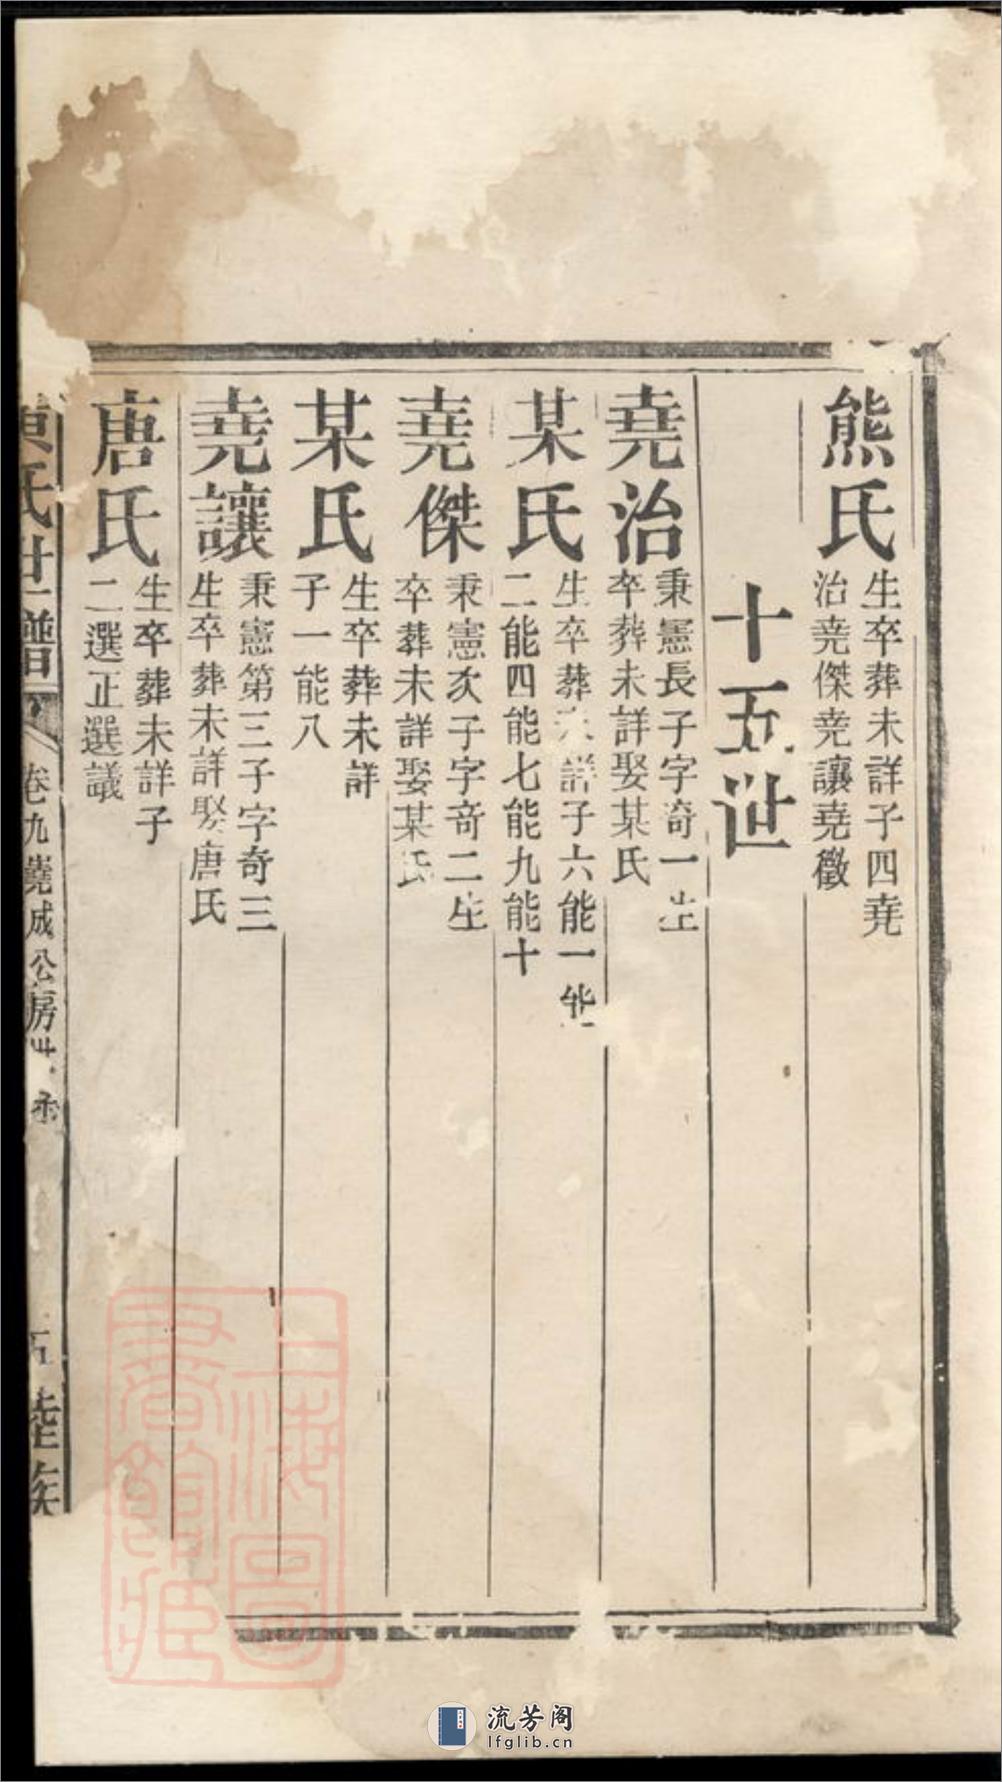 熊氏
生卒葬未詳子四堯
治堯傑堯讓堯徵
十五世
堯治
秉憲長子字奇一生
卒葬未詳娶某氏
某氏
生卒葬未詳子六能一能
二能四能七能九能十
堯傑
秉憲次子字奇二生
卒葬未詳娶某氏
某氏
生卒葬未詳
子一能八
堯讓
秉憲第三子字奇三
生卒葬未詳娶唐氏
唐氏
生卒葬未詳子
二選正選議
氏世譜
卷九堯成公房
睦族
上海圖
書館藏
流芳阁
lfglib.cn